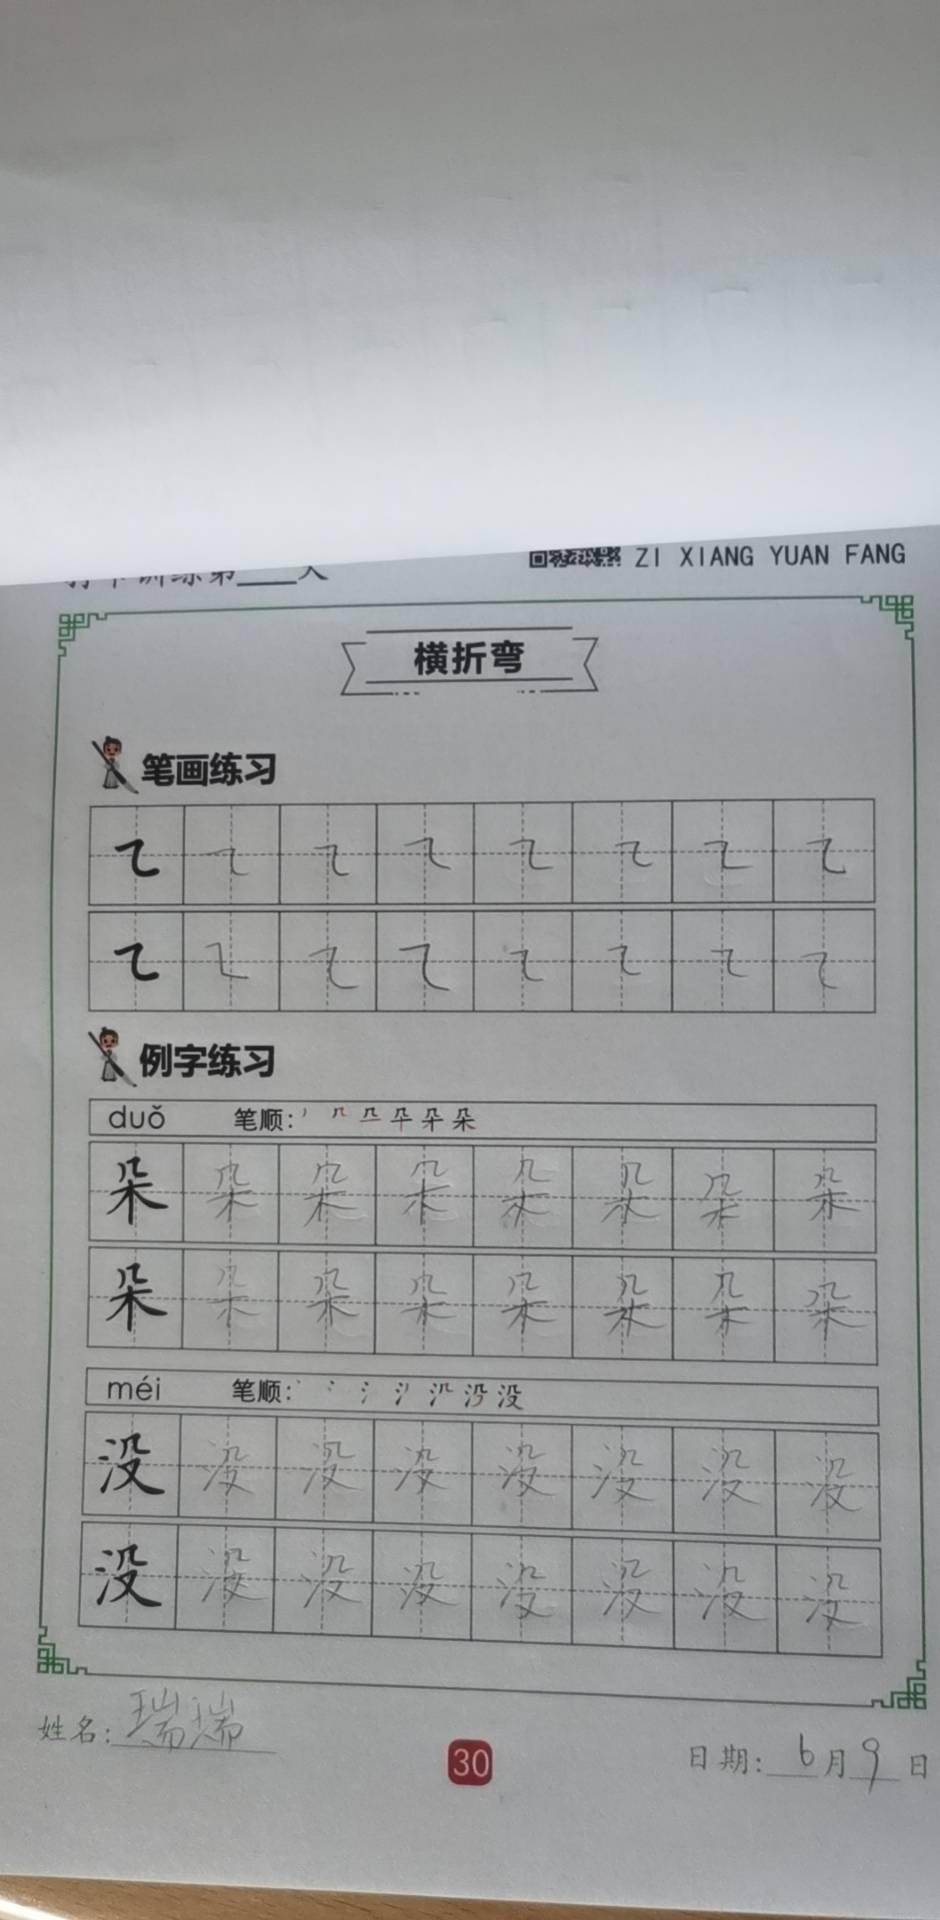 训练第____天 ZI XIANG YUAN FANG
横折弯
笔画练习
㇍ ㇍ ㇍ ㇍ ㇍ ㇍ ㇍ ㇍
㇍ ㇍ ㇍ ㇍ ㇍ ㇍ ㇍ ㇍
例字练习
duǒ 笔顺:
朵 朵 朵 朵 朵 朵 朵 朵
朵 朵 朵 朵 朵 朵 朵 朵
méi 笔顺:
没 没 没 没 没 没 没 没
没 没 没 没 没 没 没 没
姓名:瑞瑞 30 日期:6月9日